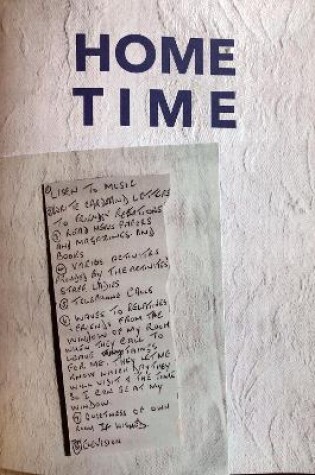 HOME
TIME
① LISEN TO MUSIC
② WRITE CARDS AND LETTERS
TO FRIENDS/ RELATIONS
③ READ NEWS PAPERS
AND MAGAZINES AND
BOOKS
④ VARIOS ACTIVITIES
PROVIDED BY THE ACTIVITIES
STAFF LADIES
⑤ TELEPHONE CALLS
⑥ WAVES TO RELATIVES
+ FRIENDS FROM THE
WINDOW OF MY ROOM
WHEN THEY CALL TO
LEAVE THINGS
FOR ME. THEY LET ME
KNOW WHICH DAY THEY
WILL VISIT & THE TIME
SO I CAN BE AT MY
WINDOW
⑦ QUIETNESS OF OWN
ROOM IF WISHED